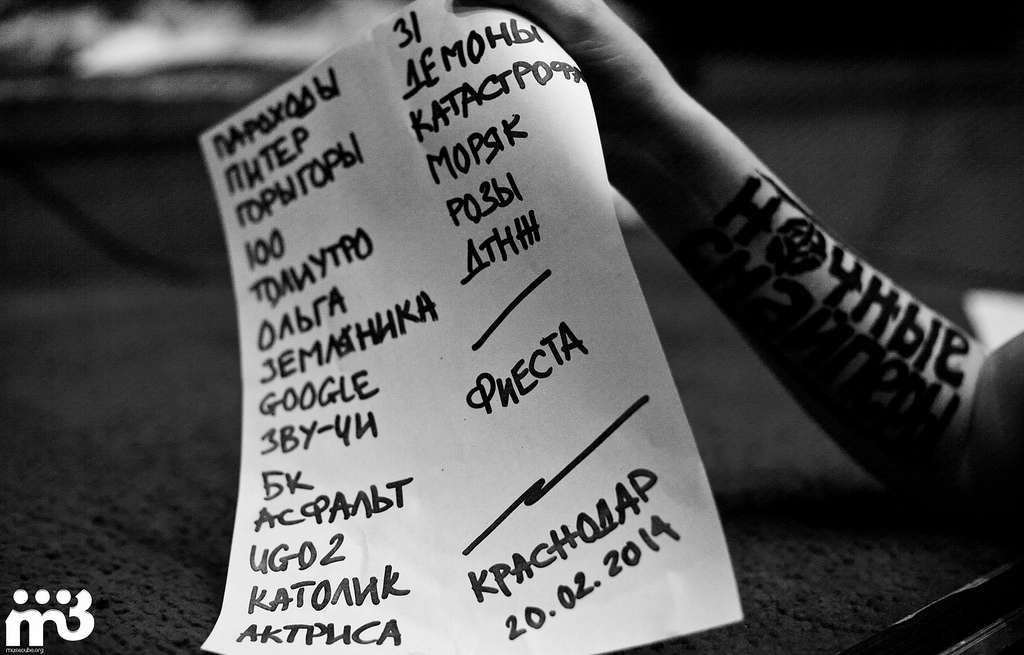 ПАРОХОДЫ
ПИТЕР
ГОРЫГОРЫ
100
ТОЛИУТРО
ОЛЬГА
ЗЕМЛЯНИКА
GOOGLE
ЗВУ-ЧИ
БК
АСФАЛЬТ
UGO2
КАТОЛИК
АКТРИСА
31
ДЕМОНЫ
КАТАСТРОФЫ
МОРЯК
РОЗЫ
ДТНЖ
ФиЕСТА
КРАСНОДАР
20.02.2014
Ночные
снайперы
m3
musecube.org